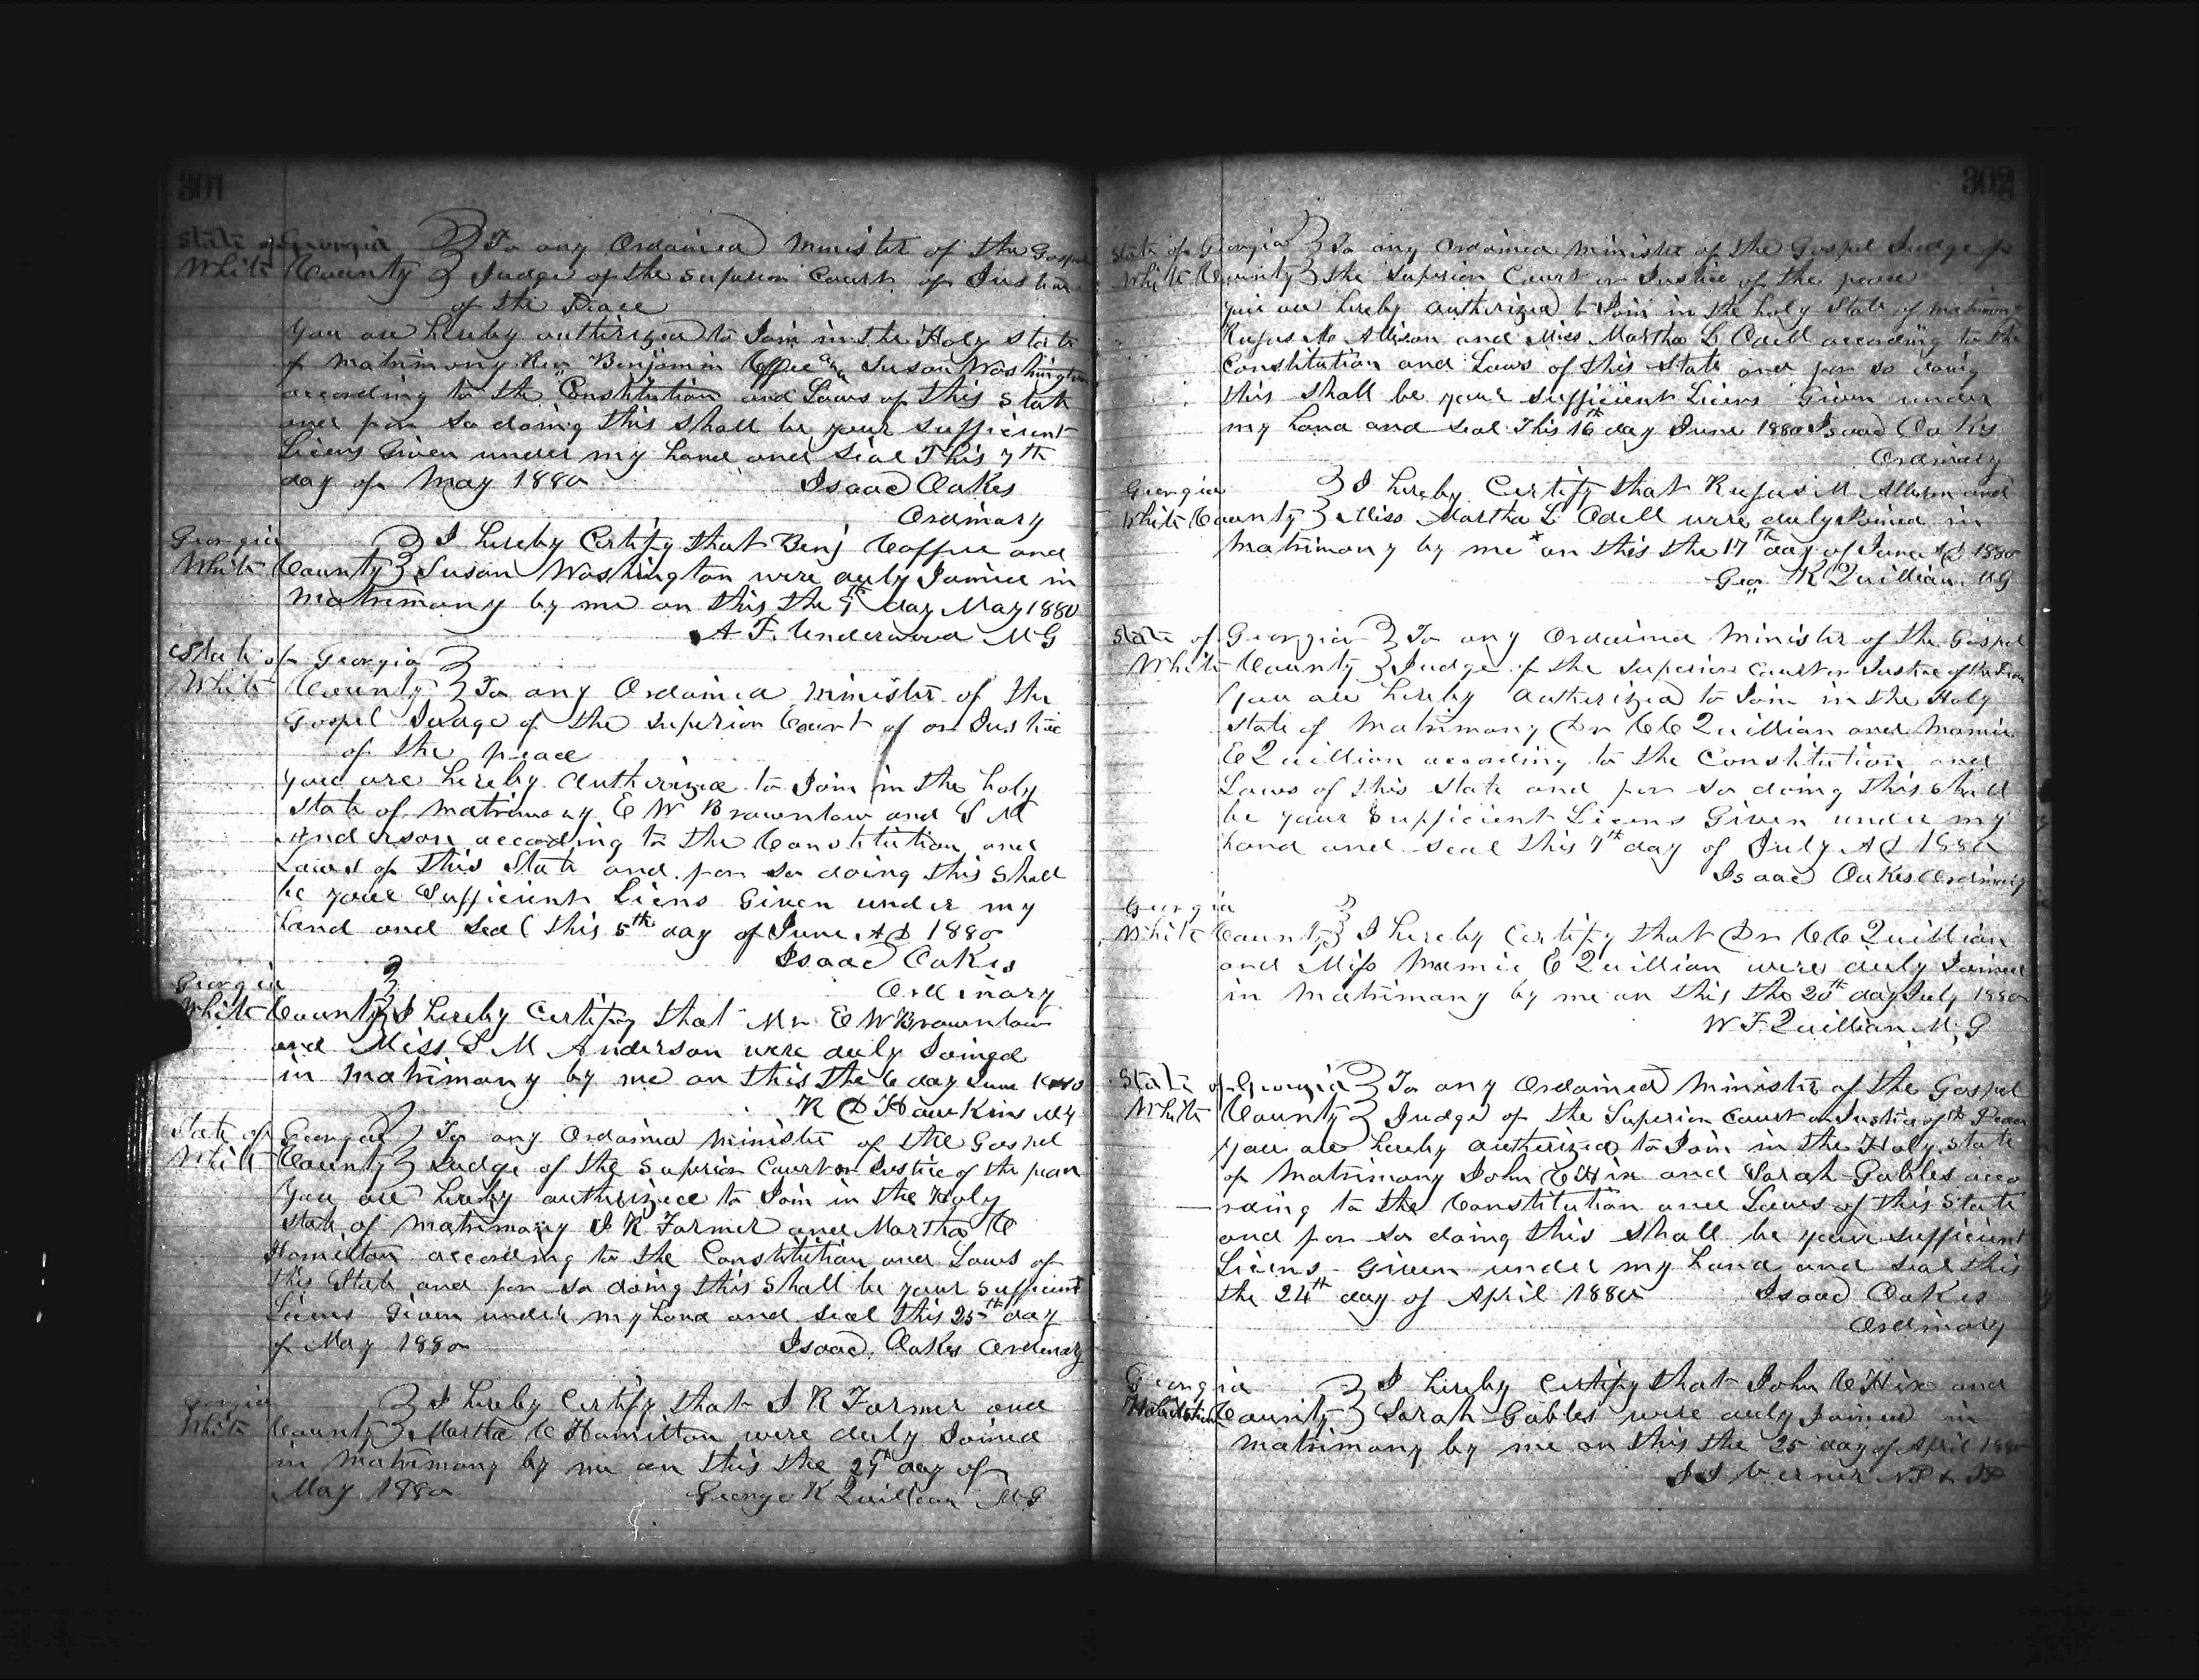 301
State of Georgia } To any Ordained Minister of the Gospel
White County } Judge of the Superior Court or Justice
of the Peace
You are hereby authorized to Join in the Holy State
of Matrimony Benjamin Coffee and Susan Washington
according to the Constitution and Laws of this State
and for so doing this shall be your sufficient
Licens Given under my hand and seal This 7th
day of May 1880 Isaac Oakes
Ordinary
Georgia } I hereby Certify that Benj Coffee and
White County } Susan Washington were duly Joined in
Matrimony by me on this the 9th day May 1880
A F. Underwood M G
State of Georgia }
White County } To any Ordained Minister of the
Gospel Judge of the Superior Court of or Justice
of the peace
You are hereby Authorized to Join in the holy
State of Matrimony E W Brownlow and S M
Anderson according to the Constitution and
Laws of This State and for so doing this shall
be your Sufficient Licens Given under my
hand and seal this 5th day of June A D 1880
Isaac Oakes
Ordinary
Georgia }
White County } I hereby Certify that Mr E W Brownlow
and Miss S M Anderson were duly Joined
in Matrimony by me on this the 6 day June 1880
R D Hawkins MG
State of Georgia } To any Ordained Minister of the Gospel
White County } Judge of the Superior Court or Justice of the peace
You are hereby authorized to Join in the Holy
State of Matrimony J R Farmer and Martha C
Hamilton according to the Constitution and Laws of
this State and for so doing this shall be your sufficient
Licens Given under my hand and seal this 25th day
of May 1880 Isaac Oakes Ordinary
Georgia } I hereby Certify that J R Farmer and
White County } Martha C Hamilton were duly Joined
in Matrimony by me on this the 27th day of
May 1880 George K Quillian M.G
302
State of Georgia } To any Ordained Minister of the Gospel Judge of
White County } the Superior Court or Justice of the peace
you are hereby authorized to Join in the holy State of matrimony
Rufus M Allison and Miss Martha L Odell according to the
Constitution and Laws of this State and for so doing
this shall be your sufficient Licens Given under
my hand and seal This 16th day June 1880 Isaac Oakes
Ordinary
Georgia } I hereby Certify that Rufus M Allison and
White County } Miss Martha L Odell were duly Joined in
Matrimony by me on this the 17th day of June A D 1880
Geo. K Quillian. M G
State of Georgia } To any Ordained Minister of the Gospel
White County } Judge of the Superior Court or Justice of the Peace
You are hereby authorized to Join in the Holy
State of Matrimony Dr C C Quillian and Mamie
E Quillian according to the Constitution and
Laws of this State and for so doing this shall
be your Sufficient Licens Given under my
hand and seal this 7th day of July A D 1880
Isaac Oakes Ordinary
Georgia }
White County } I hereby Certify that Dr C C Quillian
and Miss Mamie E Quillian were duly Joined
in Matrimony by me on this the 20th day July 1880
W F. Quillian M. G
State of Georgia } To any Ordained Minister of the Gospel
White County } Judge of the Superior Court or Justice of the Peace
You are hereby authorized to Join in the Holy State
of Matrimony John C Hix and Sarah Gables acco
rding to the Constitution and Laws of this State
and for so doing this shall be your sufficient
Licens Given under my hand and seal this
the 24th day of April 1880 Isaac Oakes
Ordinary
Georgia } I hereby Certify that John C Hix and
County } Sarah Gables were duly Joined in
Matrimony by me on this the 25 day of April 1880
J J Verner N P & J P